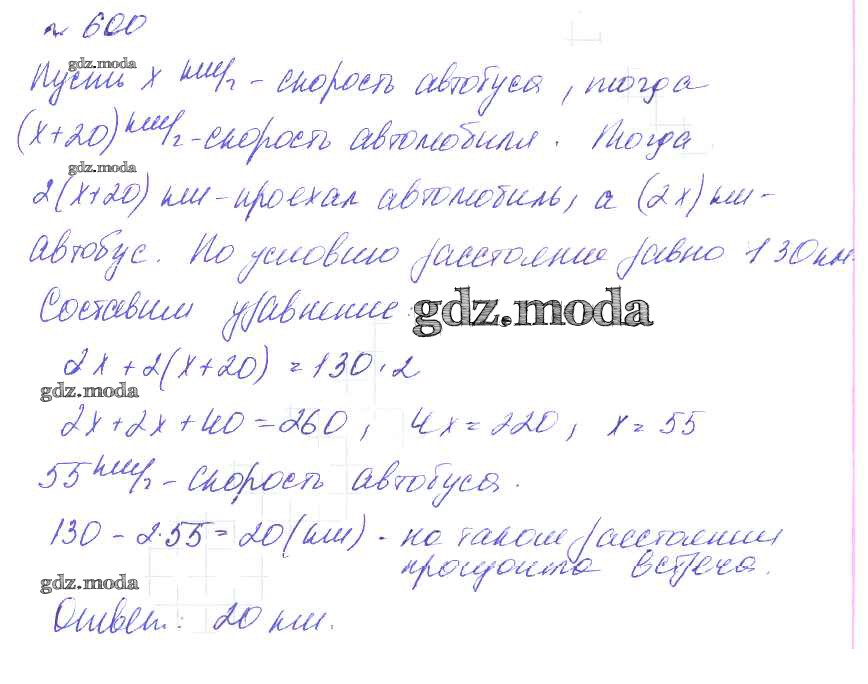 № 600
gdz.moda
Пусть х км/г - скорость автобуса, тогда
(х+20) км/г - скорость автомобиля. Тогда
gdz.moda
2(х+20) км - проехал автомобиль, а (2х) км -
автобус. По условию расстояние равно 130 км.
Составим уравнение:
gdz.moda
2х + 2(х+20) = 130·2
gdz.moda
2х + 2х + 40 = 260, 4х = 220, х = 55
55 км/г - скорость автобуса.
130 - 2·55 = 20 (км) - на таком расстоянии
произойдёт встреча.
gdz.moda
Ответ: 20 км.